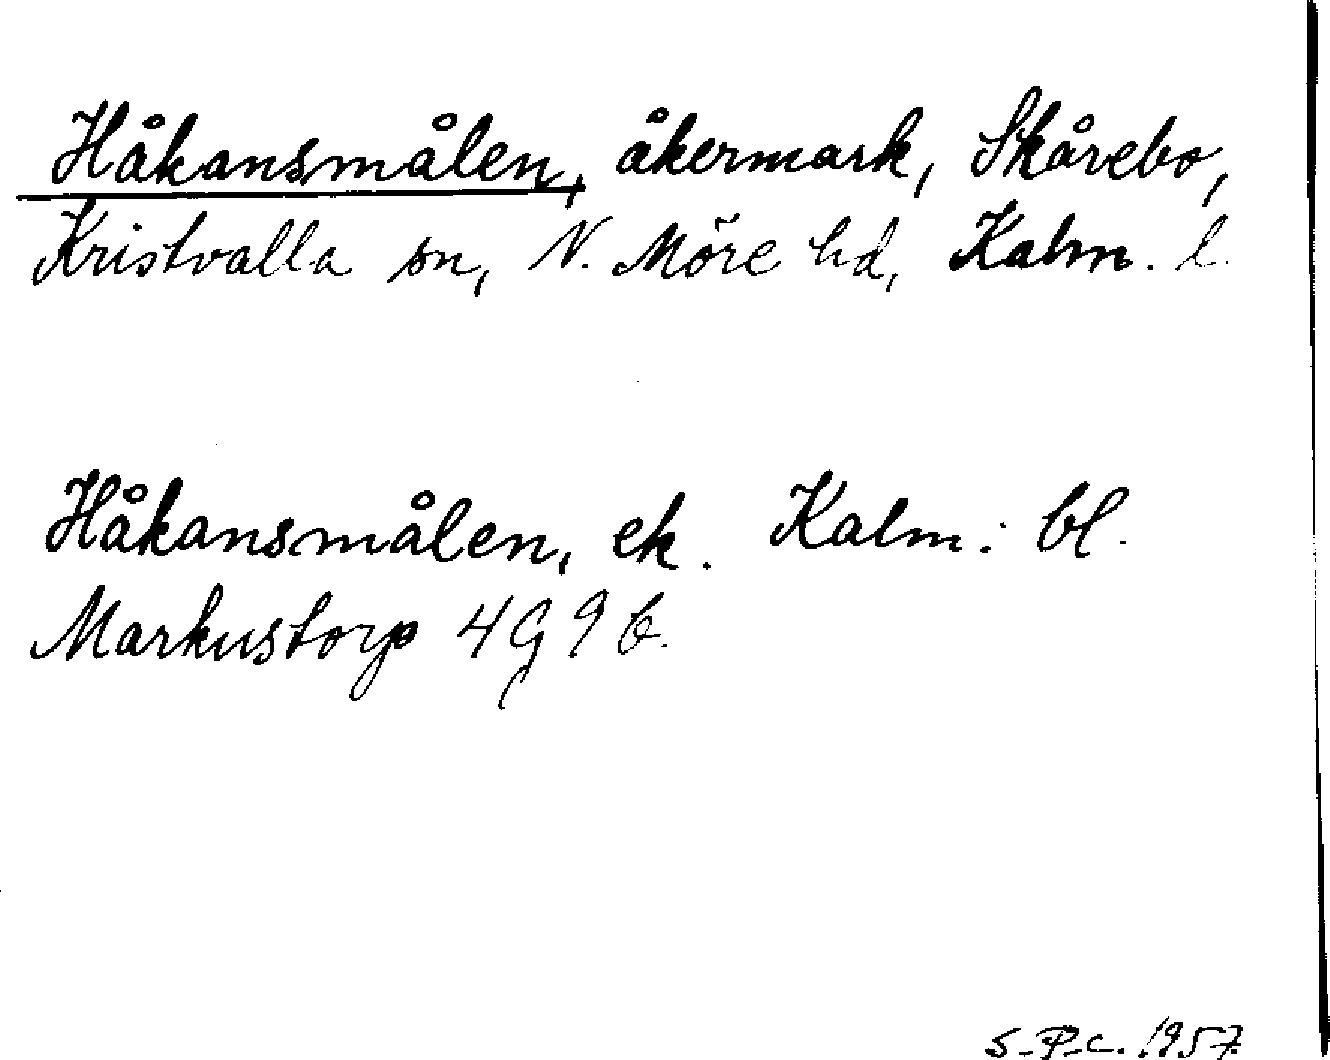 Håkansmålen, åkermark, Skårebo,
Kristvalla sn, N. Möre hd, Kalm. l.
Håkansmålen, ek. Kalm: bl.
Markustorp 4G 9b.
S.P.C. 1957.